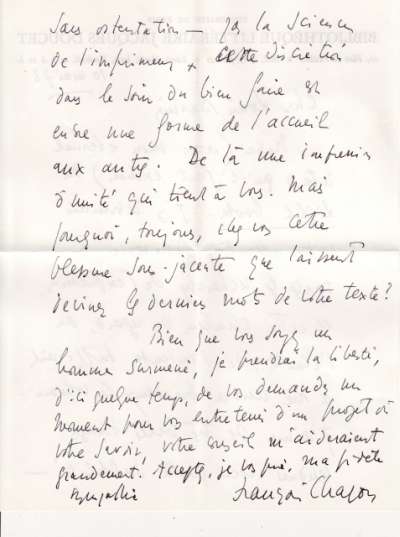 Sans ostentation — ça la science
de l'imprimeur + cette discrétion
dans le soin du bien faire est
encore une forme de l'accueil
aux autres. De là une impression
d'unité qui tient à vous. Mais
pourquoi, toujours, chez vous cette
blessure sous-jacente que laissent
deviner les derniers mots de votre texte?
Bien que vous soyez un
homme surmené, je prendrai la liberté,
d'ici quelque temps, de vous demander un
moment pour vous entretenir d'un projet où
votre savoir, votre conseil m'aideraient
grandement. Acceptez, je vous prie, ma fidèle
sympathie
François Chapon